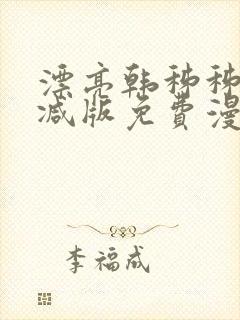 漂亮韩秭秭
减版免费漫
李福成